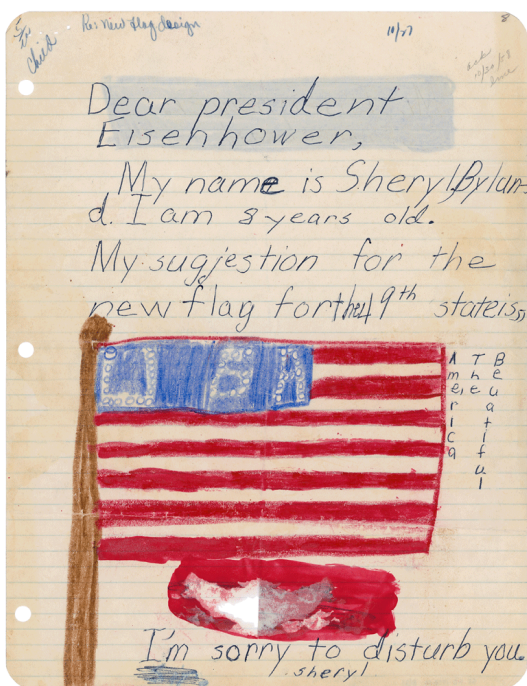 Re: New flag design
10/27
8
Child
Dear president
Eisenhower,
My name is Sheryl Bylan-
d. I am 8 years old.
My sugjestion for the
new flag for the 49th state is,,
America
The
Beuatiful
I'm sorry to disturb you.
sheryl